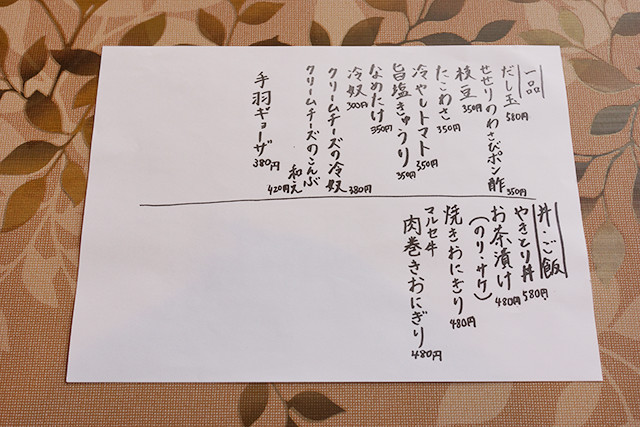 一品
だし玉 580円
せせりのわさびポン酢 350円
枝豆 350円
たこわさ 350円
冷やしトマト 350円
旨塩きゅうり 350円
なめたけ 350円
冷奴 300円
クリームチーズの冷奴 380円
クリームチーズのこんぶ和え 420円
手羽ギョーザ 380円
丼・ご飯
やきとり丼 580円
お茶漬け 480円
(のり・サケ)
焼きおにぎり 480円
マルセ牛
肉巻きおにぎり 480円